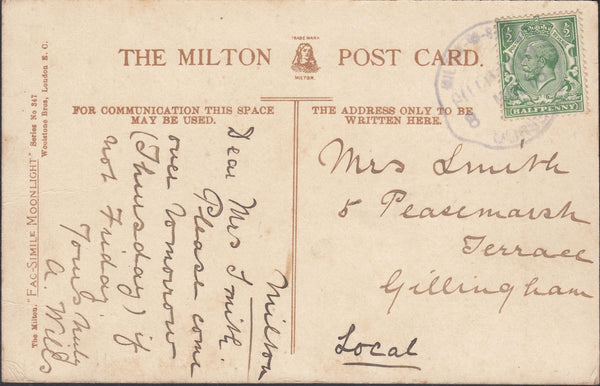 TRADE MARK
THE MILTON POST CARD.
MILTON.
FOR COMMUNICATION THIS SPACE
MAY BE USED.
THE ADDRESS ONLY TO BE
WRITTEN HERE.
The Milton "FAC-SIMILE MOONLIGHT" Series No 347
Woolstone Bros, London E.C.
Milton
Dear Mrs Smith.
Please come
over tomorrow
(Thursday) if
not Friday.
Yours truly
A. Wills
Mrs Smith
5 Peasemarsh
Terrace
Gillingham
Local
½ ½
HALFPENNY